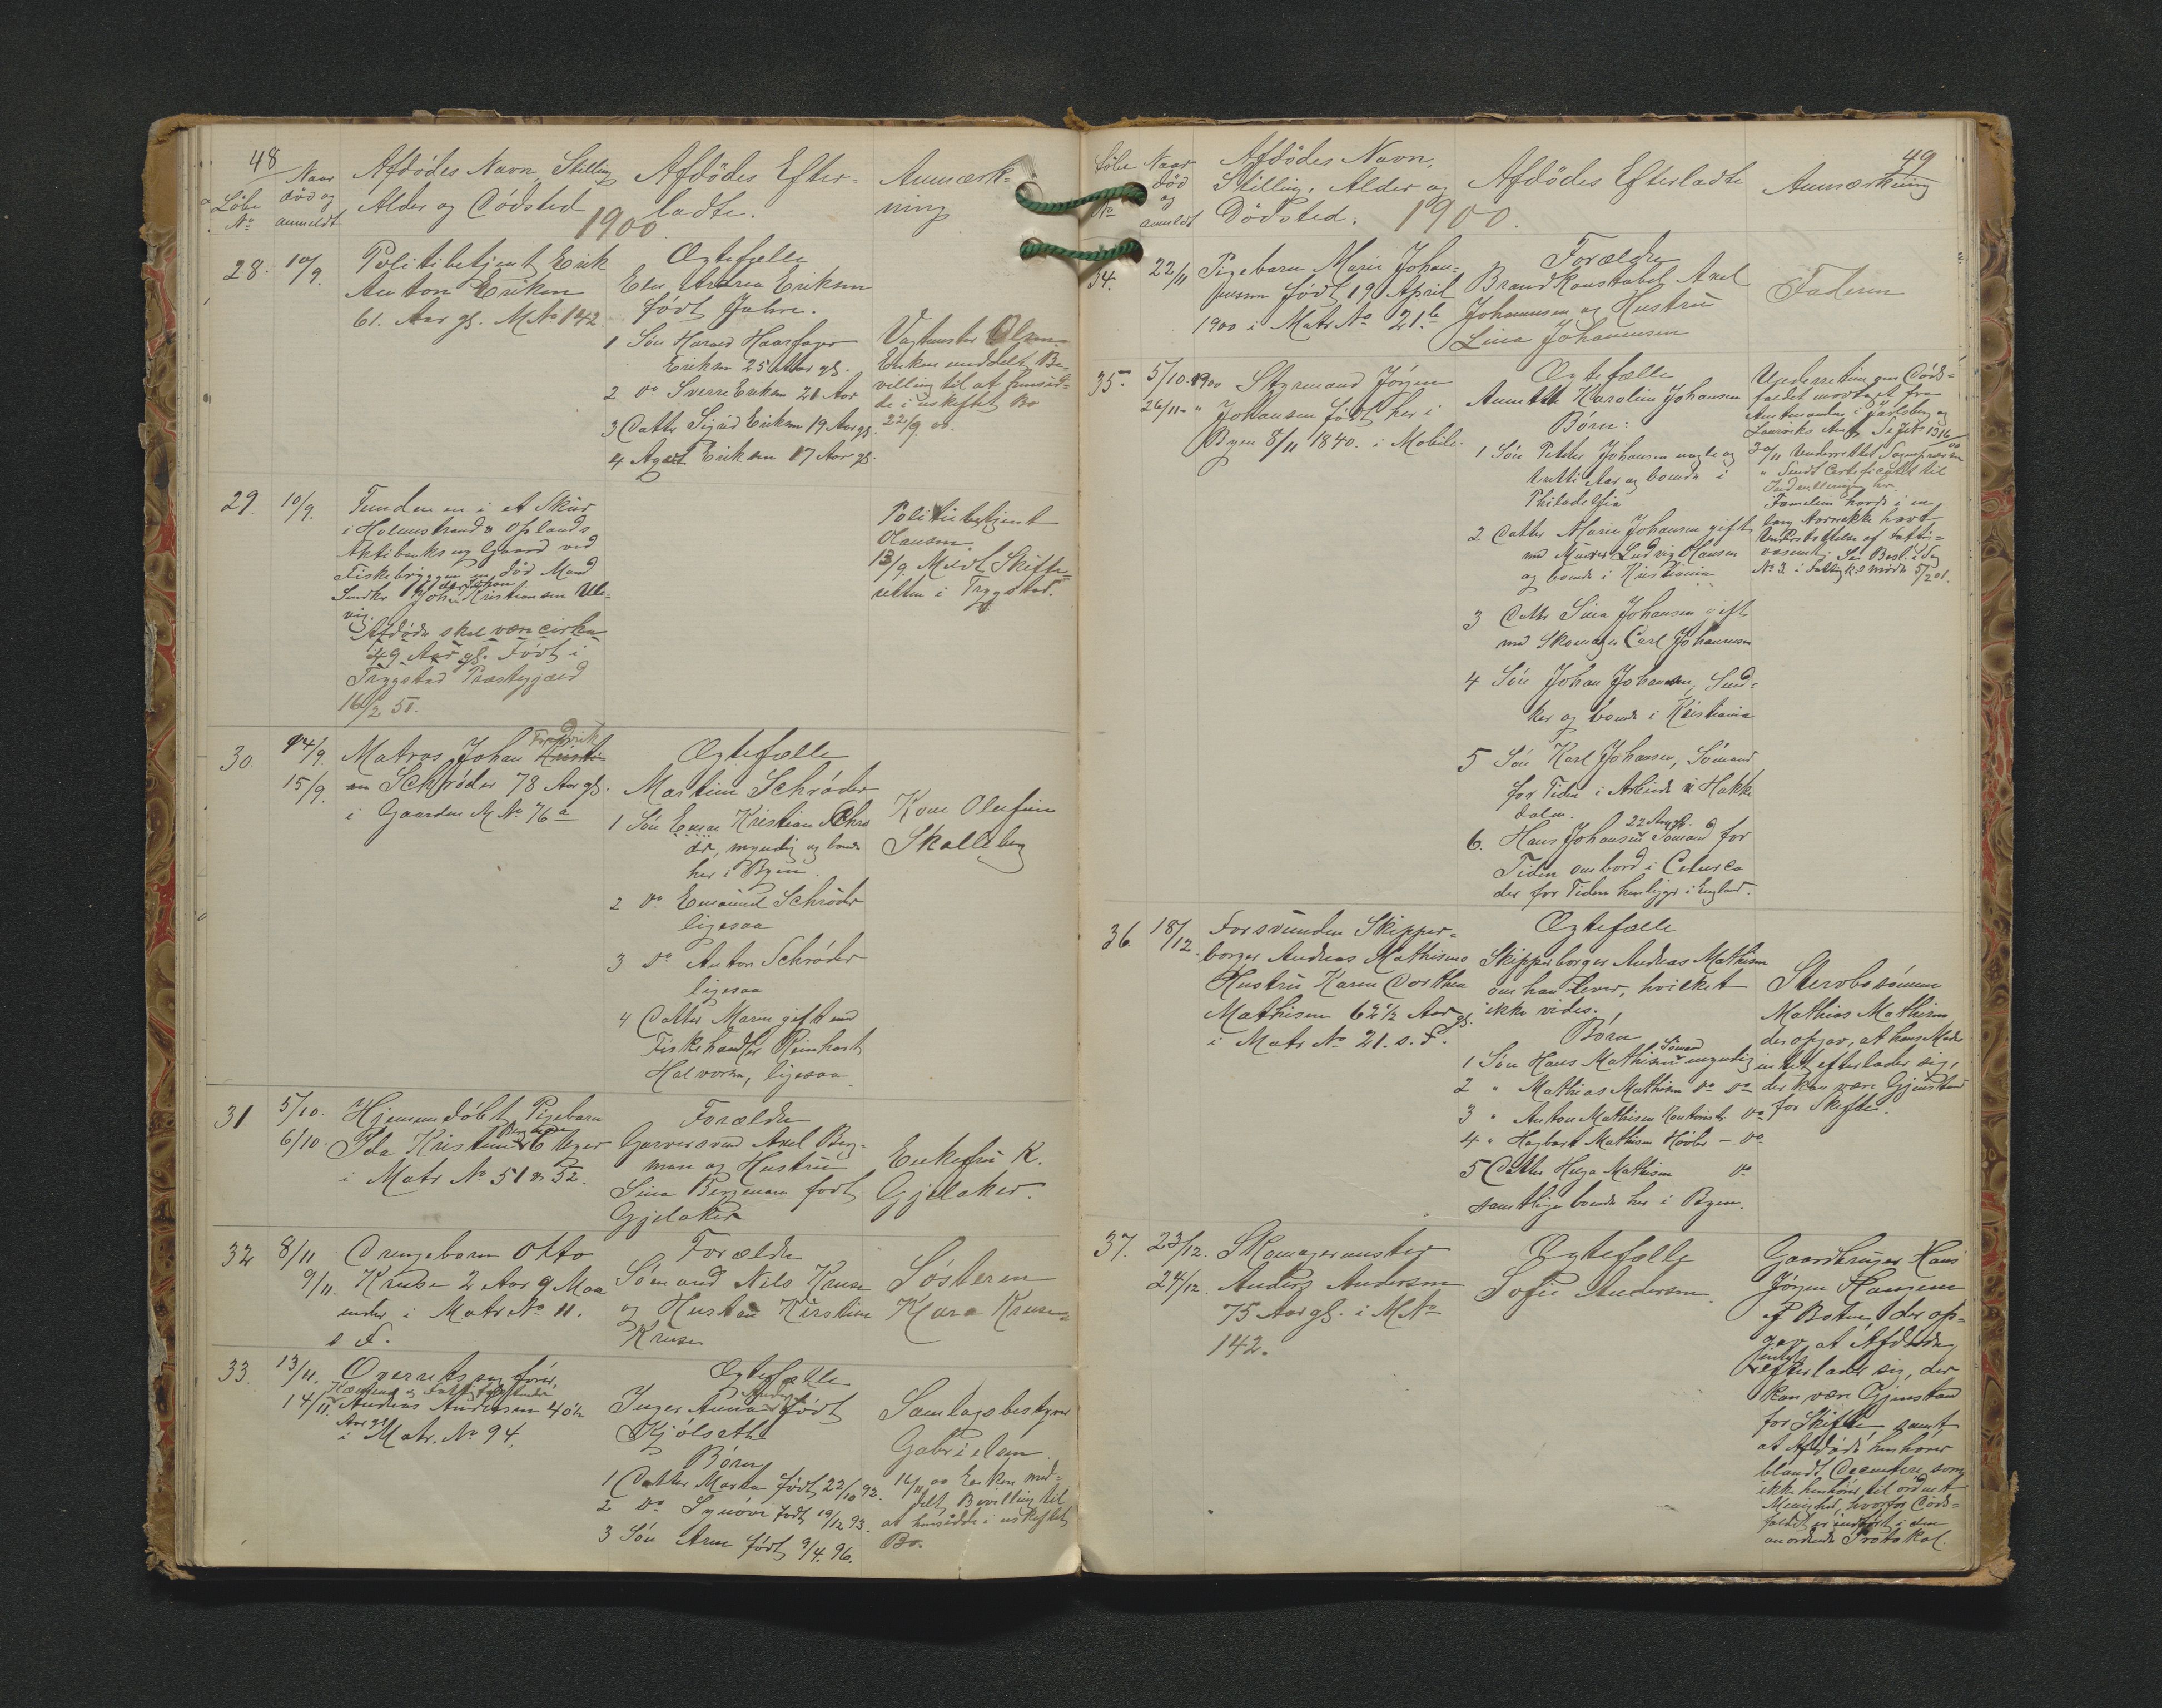 48
Löbe
No
Naar
död og
anmeldt
Afdödes Navn, Stilling
Alder og Dödsted
Afdödes Efter-
ladte.
Anmærk-
ning
1900
28.
10/9.
Politibetjent Erik
Anton Eriksen
61. Aar gl. M No 142
Ægtefælle
Eriksen
födt Jahre.
1 Sön Harald Haarfager
Eriksen 25 Aar gl.
2 do Sverre Eriksen 21 Aar
3 Datter Sigrid Eriksen 19 Aar gl.
4 Eriksen 17 Aar gl.
Vagtmester Olsen
Enken meddelt Be-
villing til at hensid-
de i uskiftet Bo
22/9. 00.
29.
10/9.
Funden en i et Skur
i Holmestrand & Oplands
Aktiebanks Gaard ved
Fiskebryggen død Mand
Snedker Johan Kristiansen Ulle-
vig.
Afdöde skal være cirka
49 Aar gl. Födt i
Trygstad Præstegjæld
16/2 51.
Politibetjent
Hansen.
13/9. Meldt Skifte-
retten i Trygstad.
30.
14/9.
15/9.
Fredrik
Matros Johan Kristi-
an Schröder 78 Aar gl.
i Gaarden M No 76 a
Ægtefælle
Martine Schröder
1 Sön Kristian Schrö
der, myndig og boende
her i Byen.
2 do Schröder
ligesaa
3 do Anton Schröder
ligesaa
4 Datter Maren gift med
Fiskehandler Reinhart
Halvorsen, ligesaa
Kone Olefine
Skalleberg
31
5/10.
6/10.
Hjemmedöbt Pigebarn
Bergman
Ida Kristine 6 Uger
i Matr No 51 & 52.
Forældre
Garversvend Axel Berg-
man og Hustru
Lina Bergman født
Gjelaker
Enkefru K.
Gjelaker.
32
8/11
9/11.
Drengebarn Otto
Kruse 2 Aar 9 Maa
neder i Matr No 11.
s F.
Forældre
Sömand Nils Kruse
og Hustru Kirstine
Kruse
Sösteren
Klara Kruse
33.
13/11.
14/11.
Overretssagförer,
Kæmner og
Andreas Andersen 40½
Aar gl.
i Matr. No 94.
Ægtefælle
Andersen
Inger Anna født
Kjölseth
Börn
1 Datter Marta født 22/10 92.
2 do Synöve født 19/12 93.
3 Sön Arne født 9/4. 96.
Samlagsbestyrer
Gabrielsen.
16/11 00 Enken med-
delt Bevilling til
at hensidde i uskiftet
Bo.
49
Löbe
No
Naar
död
og
anmeldt
Afdödes Navn,
Stilling, Alder og
Dödsted.
Afdödes Efterladte
Anmærkning
1900.
34.
22/11
Pigebarn Marie Johan-
nesen født 19 April
1900 i Matr No 21.
Forældre
Brandkonstabel Axel
Johannesen og Hustru
Lina Johannesen
Faderen
35.
5/10. 1900
26/11 - "
Styrmand Jörgen
Johansen født her i
Byen 8/11 1840. i Mobile.
Ægtefælle
Annette Karoline Johansen
Börn:
1 Sön Petter Johansen nogle og
tretti Aar og boende i
Philadelfia
2 Datter Marie Johansen gift
med Murer Ludvig Hansen
og boende i Kristiania
3 Datter Lina Johansen gift
med Skomager Carl Johannesen
4 Sön Johan Johansen, Sned-
ker og boende i Kristiania
5 Sön Karl Johansen, Sömand
for Tiden i Arbeide i Hakke
dalen.
22 Aar gl.
6. Hans Johansen Sömand for
Tiden ombord i
der for Tiden henligger i England.
Underretning om Döds-
faldet modtaget fra
Amtmanden i Jarlsberg og
Laurviks Amt. Se Jr No 1316/00
30/11 Underrettet Sognepræsten
" Sendt Certificatet til
her.
Familien havde i en
lang Aarrække havt
Understöttelse af Fattig-
væsenet. Se Besl. i Sag
No 3. i Fattigk.s möde 5/2 01.
36.
18/12.
Forsvunden Skipper-
borger Andreas Mathisens
Hustru Karen Dorthea
Mathisen 62½ Aar gl.
i Matr No 21. s. F.
Ægtefælle
Skipperborger Andreas Mathisen
om han lever, hvilket
ikke vides.
Börn
Sömand
1 Sön Hans Mathisen myndig
2 " Mathias Mathisen do do
3 " Anton Mathisen Kontorist do
4 " Hagbart Mathisen - do
5 Datter Helga Mathisen do
samtlige boende her i Byen.
Stervbosönnen
Mathias Mathisen,
der opgav, at hans Moder
intet efterlader sig,
der kan være Gjenstand
for Skifte.
37.
23/12.
24/12.
Skomagermester
Anders Andersen
75 Aar gl. i M No
142.
Ægtefælle
Sofie Andersen.
Gaardbruger Hans
Jörgen Hansen
af Botne, der op-
gav at Afdöde
intet
efterlader sig, der
kan være Gjenstand
for Skifte, samt,
at Afdöde henhörer
blandt Dissentere som
ikke henhörer til ordnet
Menighed, hvorfor Döds-
faldet er indfört i den
anordnede Protokol.